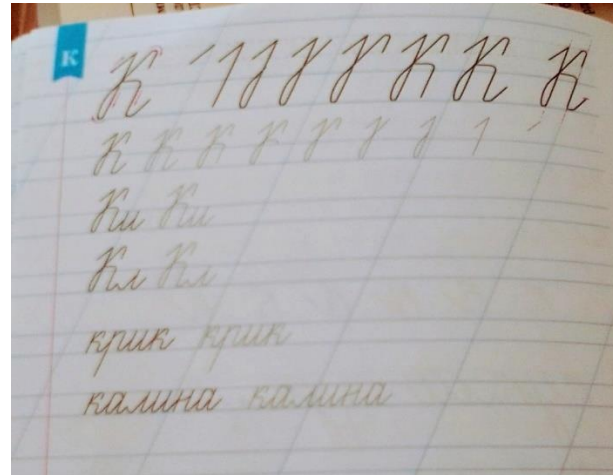 К
К К К
К К К К К
Ки Ки
Кл Кл
крик крик
калина калина